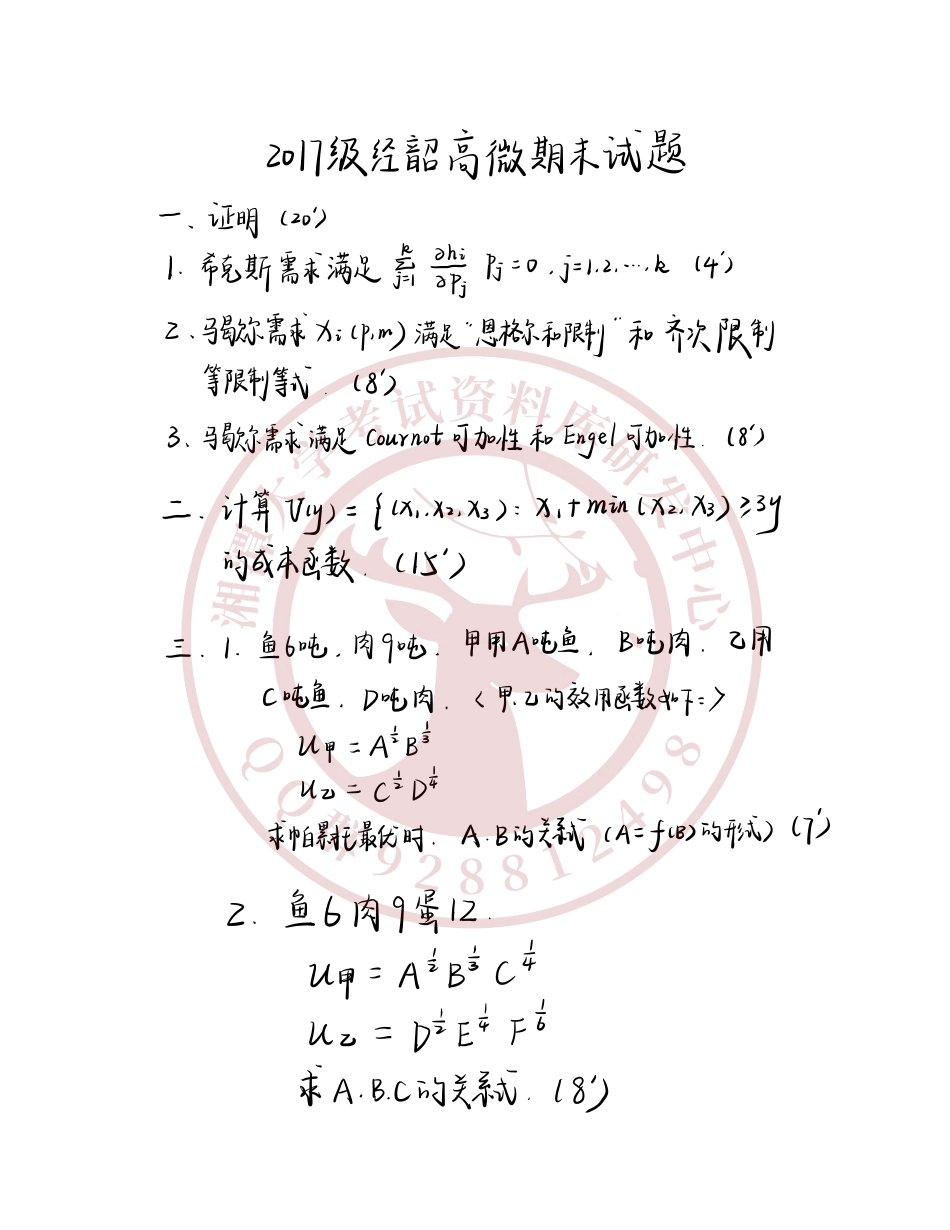 2017级经韶高微期末试题
一、证明 (20')
1. 希克斯需求满足 \sum_{j=1}^{k} \frac{∂h_i}{∂P_j} P_j = 0 , j=1.2.…,k (4')
2、马歇尔需求 x_i (p,m) 满足“恩格尔和限制”和齐次限制
等限制等式. (8')
3、马歇尔需求满足 Cournot 可加性和 Engel 可加性. (8')
二、计算 V(y) = { (x_1, x_2, x_3) : x_1 + min (x_2, x_3) ≥ 3y
的成本函数. (15')
三. 1. 鱼6吨, 肉9吨. 甲用A吨鱼, B吨肉. 乙用
C吨鱼, D吨肉. <甲.乙的效用函数如下:>
U甲 = A^{\frac{1}{2}} B^{\frac{1}{3}}
U乙 = C^{\frac{1}{2}} D^{\frac{1}{4}}
求帕累托最优时. A.B的关系式 (A=f(B)的形式) (7')
2. 鱼6肉9蛋12.
U甲 = A^{\frac{1}{2}} B^{\frac{1}{3}} C^{\frac{1}{4}}
U乙 = D^{\frac{1}{2}} E^{\frac{1}{4}} F^{\frac{1}{6}}
求A.B.C的关系式. (8')
湘潭大学考试资料库研发中心
QQ群928812498